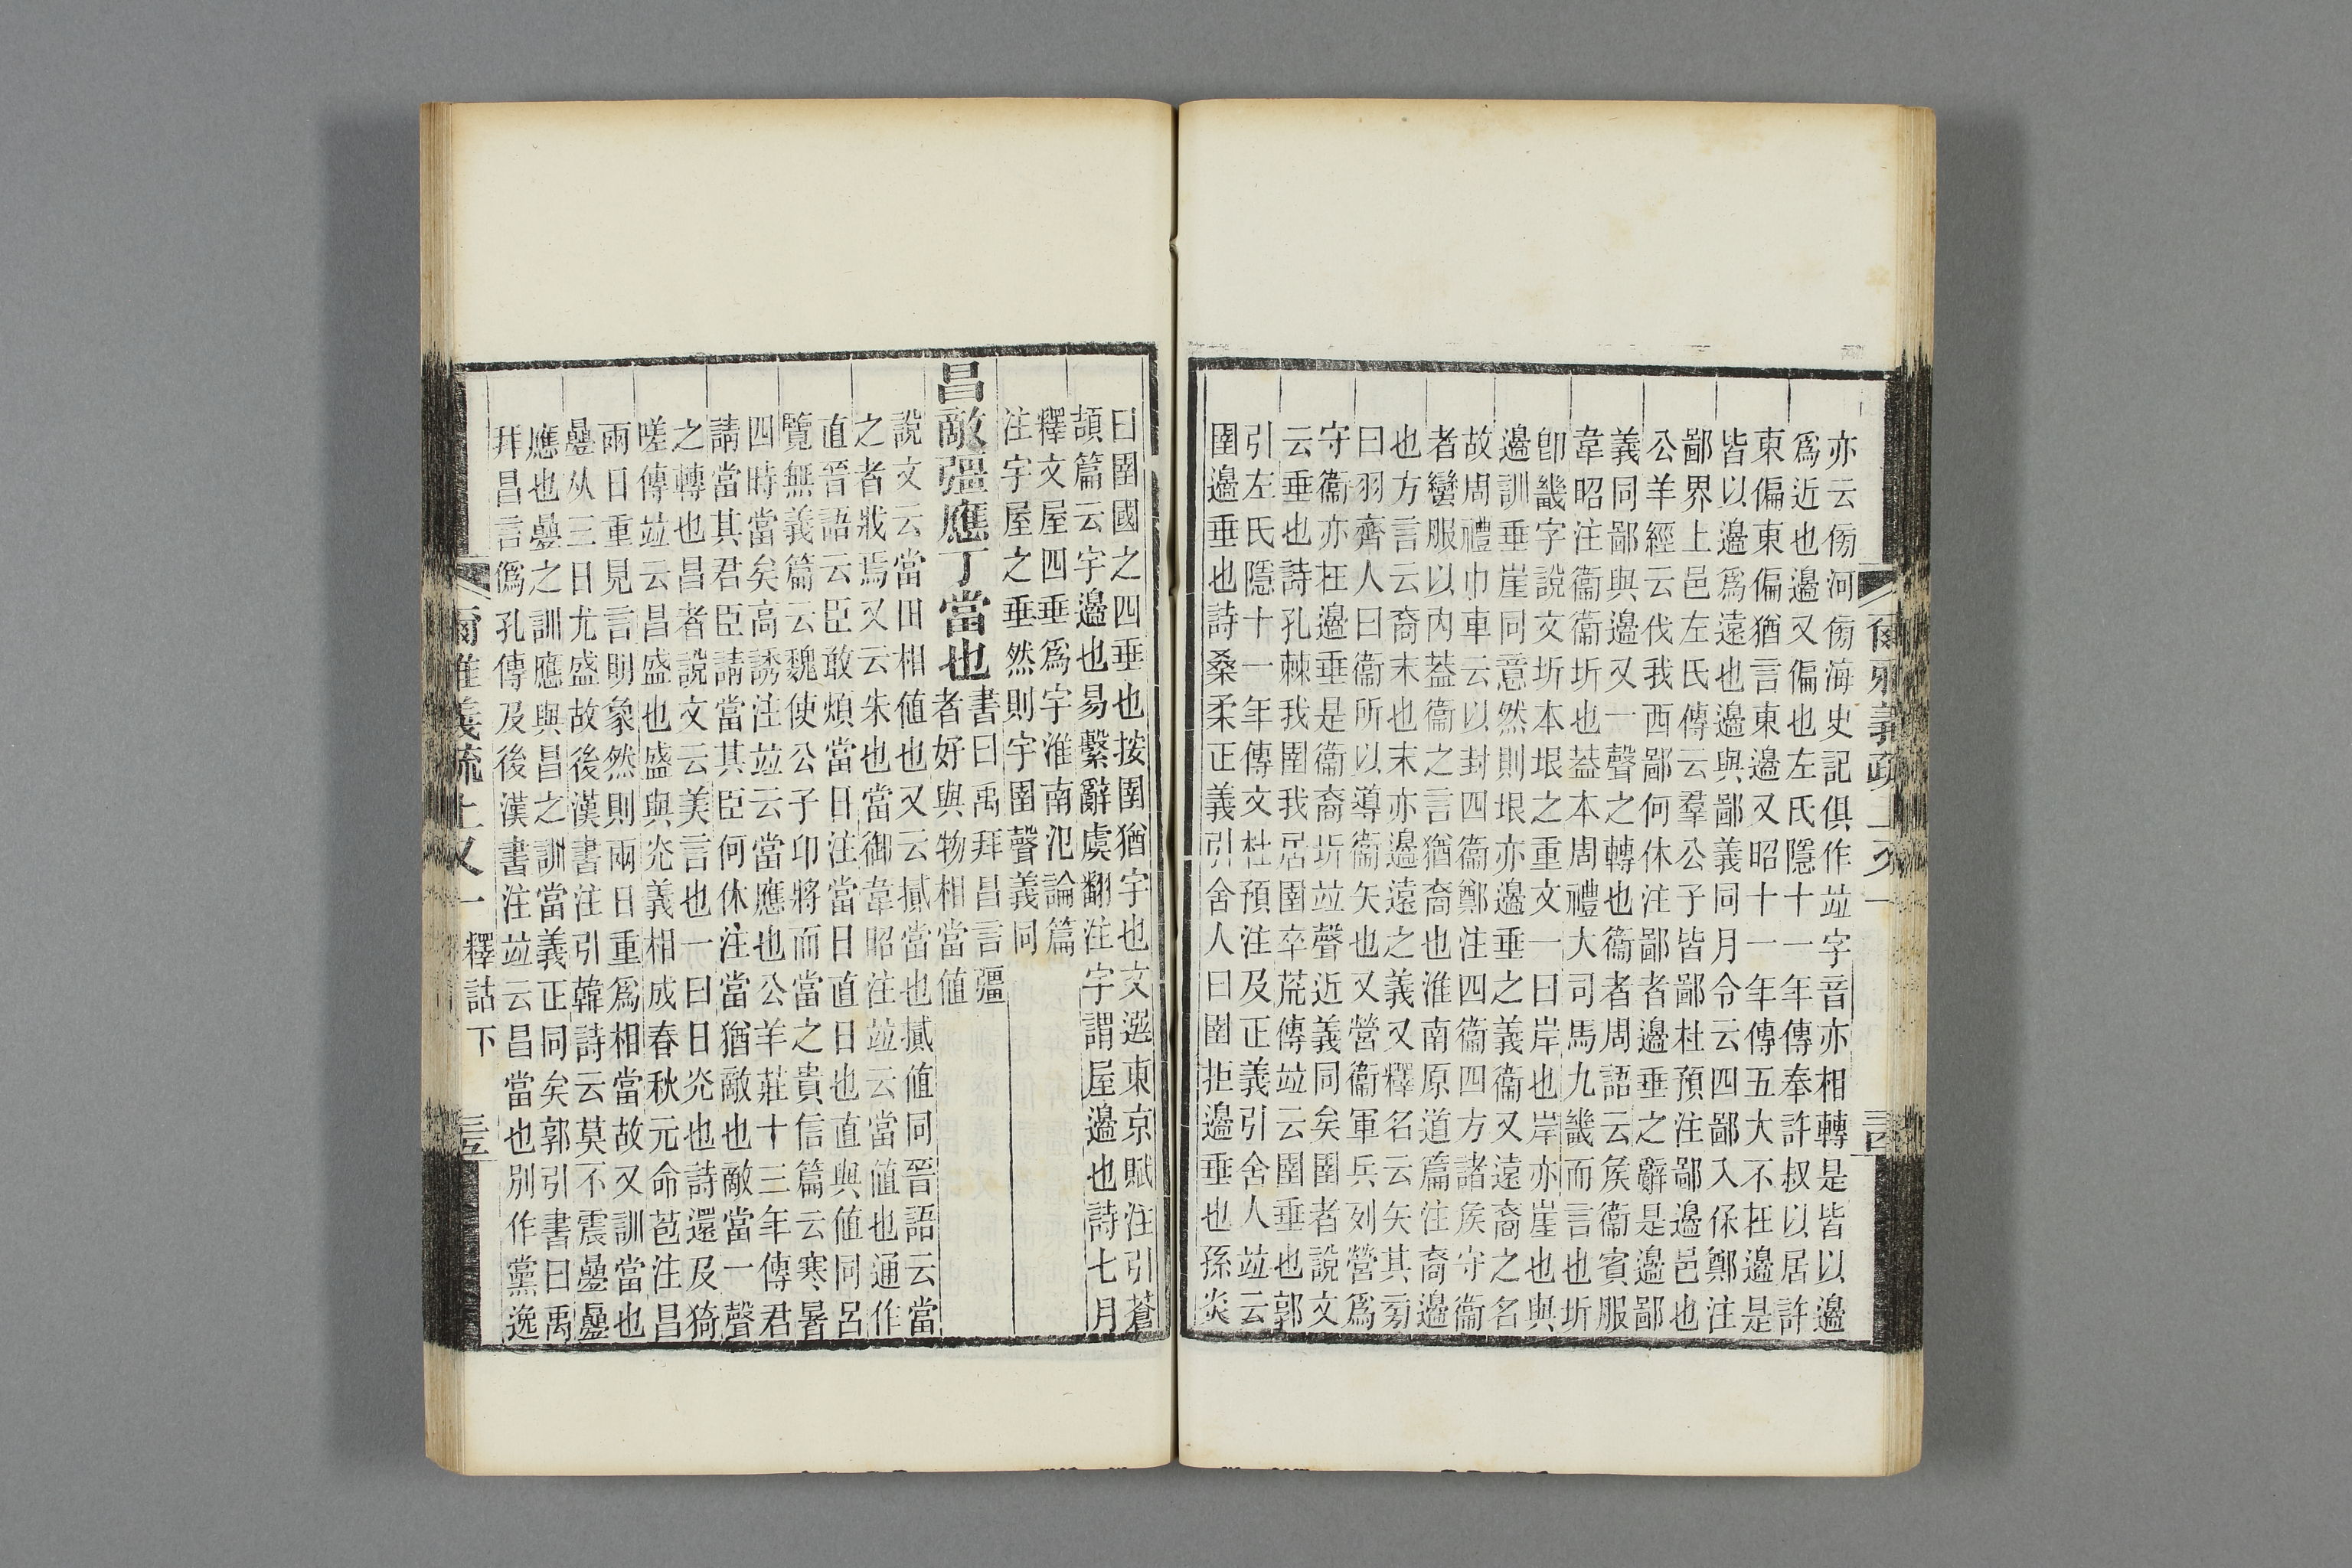 亦云㑂河㑂海史記俱作竝字音亦相轉是皆以邊
爲近也邊又偏也左氏隱十一年傳奉許叔以居許
東偏東偏猶言東邊又昭十一年傳五大不在邊是
皆以邊爲遠也邊與鄙義同月令云四鄙入保鄭注
鄙界上邑左氏傳云羣公子皆鄙杜預注鄙邊邑也
公羊經云伐我西鄙何休注鄙者邊垂之辭是邊鄙
義同鄙與邊又一聲之轉也衞者周語云矦衞賓服
韋昭注衞衞圻也葢本周禮大司馬九畿而言也圻
卽畿字說文圻本垠之重文一曰岸也岸亦崖也與
邊訓垂崖同意然則垠亦邊垂之義衞又遠裔之名
故周禮巾車云以封四衞鄭注四衞四方諸矦守衞
者蠻服以内葢衞之言猶裔也淮南原道篇注裔邊
也方言云裔末也末亦邊遠之義又釋名云矢其㫄
曰羽齊人曰衞所以導衞矢也又營衞軍兵列營爲
守衞亦在邊垂是衞裔圻竝聲近義同矣圉者說文
云垂也詩孔棘我圉我居圉卒荒傳竝云圉垂也郭
引左氏隱十一年傳文杜預注及正義引舍人竝云
圉邊垂也詩桑柔正義引舍人曰圉拒邊垂也孫炎
爾雅義疏上又一
曰圉國之四垂也按圉猶宇也文選東京賦注引蒼
頡篇云宇邊也易繫辭虞翻注宇謂屋邊也詩七月
釋文屋四垂爲宇淮南氾論篇
注宇屋之垂然則宇圉聲義同
昌敵彊應丁當也
書曰禹拜昌言彊
者好與物相當値
說文云當田相値也又云貳當也貳値同晉語云當
之者戕焉又云朱也當御韋昭注竝云當値也通作
直晉語云臣敢煩當日注當日直日也直與値同呂
覽無義篇云魏使公子卬將而當之貴信篇云寒暑
四時當矣高誘注竝云當應也公羊莊十三年傳君
請當其君臣請當其臣何休注當猶敵也敵當一聲
之轉也昌者說文云美言也一曰日光也詩還及猗
嗟傳竝云昌盛也盛與光義相成春秋元命苞注昌
兩日重見言明象然則兩日重爲相當故又訓當也
疊从三日尤盛故後漢書注引韓詩云莫不震疊疊
應也疊之訓應與昌之訓當義正同矣郭引書曰禹
拜昌言僞孔傳及後漢書注竝云昌當也別作黨逸
爾雅義疏上又一 釋詁下